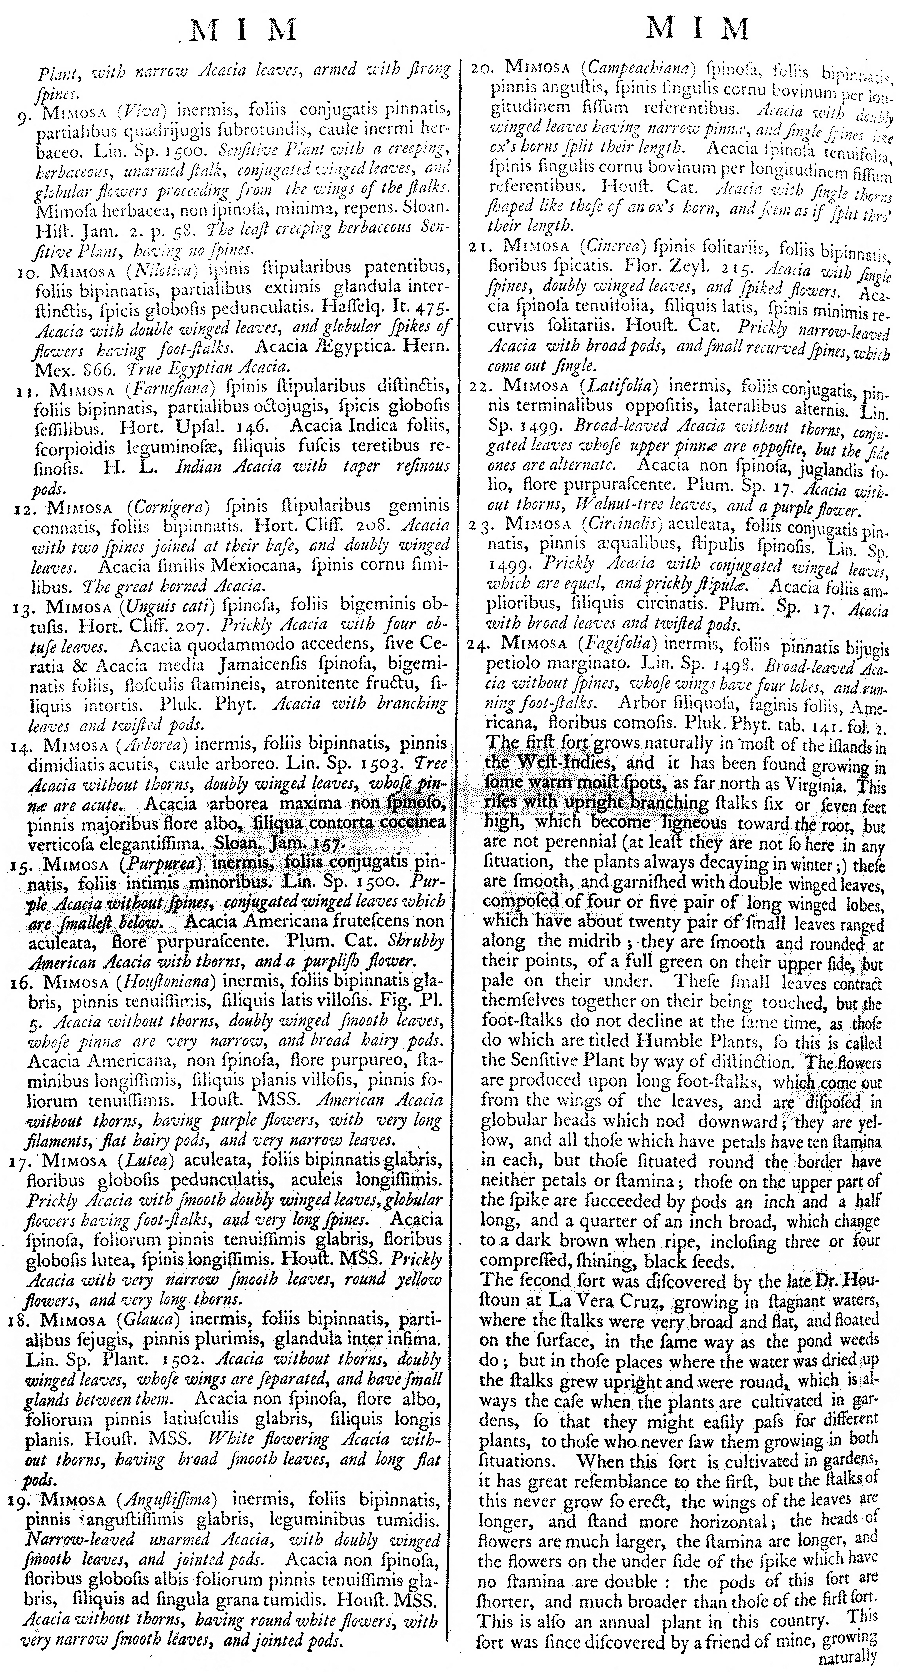 M I M
Plant, with narrow Acacia leaves, armed with ſtrong
ſpines.
9. MIMOSA (Viva) inermis, foliis conjugatis pinnatis,
partialibus quadrijugis ſubrotundis, caule inermi her-
baceo. Lin. Sp. 1500. Senſitive Plant with a creeping,
herbaceous, unarmed ſtalk, conjugated winged leaves, and
globular flowers proceeding from the wings of the ſtalks.
Mimoſa herbacea, non ſpinoſa, minima, repens. Sloan.
Hiſt. Jam. 2. p. 58. The leaſt creeping herbaceous Sen-
ſitive Plant, having no ſpines.
10. MIMOSA (Nilotica) ſpinis ſtipularibus patentibus,
foliis bipinnatis, partialibus extimis glandula inter-
ſtinctis, ſpicis globoſis pedunculatis. Haſſelq. It. 475.
Acacia with double winged leaves, and globular ſpikes of
flowers having foot-ſtalks. Acacia Ægyptica. Hern.
Mex. 866. True Egyptian Acacia.
11. MIMOSA (Farneſiana) ſpinis ſtipularibus diſtinctis,
foliis bipinnatis, partialibus octojugis, ſpicis globoſis
ſeſſilibus. Hort. Upſal. 146. Acacia Indica foliis,
ſcorpioidis leguminoſæ, ſiliquis fuſcis teretibus re-
ſinoſis. H. L. Indian Acacia with taper reſinous
pods.
12. MIMOSA (Cornigera) ſpinis ſtipularibus geminis
connatis, foliis bipinnatis. Hort. Cliff. 208. Acacia
with two ſpines joined at their baſe, and doubly winged
leaves. Acacia ſimilis Mexiocana, ſpinis cornu ſimi-
libus. The great horned Acacia.
13. MIMOSA (Unguis cati) ſpinoſa, foliis bigeminis ob-
tuſis. Hort. Cliff. 207. Prickly Acacia with four ob-
tuſe leaves. Acacia quodammodo accedens, ſive Ce-
ratia & Acacia media Jamaicenſis ſpinoſa, bigemi-
natis foliis, floſculis ſtamineis, atronitente fructu, ſi-
liquis intortis. Pluk. Phyt. Acacia with branching
leaves and twiſted pods.
14. MIMOSA (Arborea) inermis, foliis bipinnatis, pinnis
dimidiatis acutis, caule arboreo. Lin. Sp. 1503. Tree
Acacia without thorns, doubly winged leaves, whoſe pin-
næ are acute. Acacia arborea maxima non ſpinoſo,
pinnis majoribus flore albo, ſiliqua contorta coccinea
verticoſa elegantiſſima. Sloan. Jam. 157.
15. MIMOSA (Purpurea) inermis, foliis conjugatis pin-
natis, foliis intimis minoribus. Lin. Sp. 1500. Pur-
ple Acacia without ſpines, conjugated winged leaves which
are ſmalleſt below. Acacia Americana fruteſcens non
aculeata, flore purpuraſcente. Plum. Cat. Shrubby
American Acacia with thorns, and a purpliſh flower.
16. MIMOSA (Houſtoniana) inermis, foliis bipinnatis gla-
bris, pinnis tenuiſſimis, ſiliquis latis villoſis. Fig. Pl.
5. Acacia without thorns, doubly winged ſmooth leaves,
whoſe pinnæ are very narrow, and broad hairy pods.
Acacia Americana, non ſpinoſa, flore purpureo, ſta-
minibus longiſſimis, ſiliquis planis villoſis, pinnis fo-
liorum tenuiſſimis. Houſt. MSS. American Acacia
without thorns, having purple flowers, with very long
filaments, flat hairy pods, and very narrow leaves.
17. MIMOSA (Lutea) aculeata, foliis bipinnatis glabris,
floribus globoſis pedunculatis, aculeis longiſſimis.
Prickly Acacia with ſmooth doubly winged leaves, globular
flowers having foot-ſtalks, and very long ſpines. Acacia
ſpinoſa, foliorum pinnis tenuiſſimis glabris, floribus
globoſis lutea, ſpinis longiſſimis. Houſt. MSS. Prickly
Acacia with very narrow ſmooth leaves, round yellow
flowers, and very long thorns.
18. MIMOSA (Glauca) inermis, foliis bipinnatis, parti-
alibus ſejugis, pinnis plurimis, glandula inter infima.
Lin. Sp. Plant. 1502. Acacia without thorns, doubly
winged leaves, whoſe wings are ſeparated, and have ſmall
glands between them. Acacia non ſpinoſa, flore albo,
foliorum pinnis latiuſculis glabris, ſiliquis longis
planis. Houſt. MSS. White flowering Acacia with-
out thorns, having broad ſmooth leaves, and long flat
pods.
19. MIMOSA (Anguſtiſſima) inermis, foliis bipinnatis,
pinnis anguſtiſſimis glabris, leguminibus tumidis.
Narrow-leaved unarmed Acacia, with doubly winged
ſmooth leaves, and jointed pods. Acacia non ſpinoſa,
floribus globoſis albis foliorum pinnis tenuiſſimis gla-
bris, ſiliquis ad ſingula grana tumidis. Houſt. MSS.
Acacia without thorns, having round white flowers, with
very narrow ſmooth leaves, and jointed pods.
M I M
20. MIMOSA (Campeachiana) ſpinoſa, foliis bipinnatis,
pinnis anguſtis, ſpinis ſingulis cornu bovinum per lon-
gitudinem fiſſum referentibus. Acacia with doubly
winged leaves having narrow pinnæ, and ſingle ſpines like
ox's horns ſplit their length. Acacia ſpinoſa tenuifolia,
ſpinis ſingulis cornu bovinum per longitudinem fiſſum
referentibus. Houſt. Cat. Acacia with ſingle thorns
ſhaped like thoſe of an ox's horn, and ſeem as if ſplit thro'
their length.
21. MIMOSA (Cinerea) ſpinis ſolitariis, foliis bipinnatis,
floribus ſpicatis. Flor. Zeyl. 215. Acacia with ſingle
ſpines, doubly winged leaves, and ſpiked flowers. Aca-
cia ſpinoſa tenuifolia, ſiliquis latis, ſpinis minimis re-
curvis ſolitariis. Houſt. Cat. Prickly narrow-leaved
Acacia with broad pods, and ſmall recurved ſpines, which
come out ſingle.
22. MIMOSA (Latifolia) inermis, foliis conjugatis, pin-
nis terminalibus oppoſitis, lateralibus alternis. Lin.
Sp. 1499. Broad-leaved Acacia without thorns, conju-
gated leaves whoſe upper pinnæ are oppoſite, but the ſide
ones are alternate. Acacia non ſpinoſa, juglandis fo-
lio, flore purpuraſcente. Plum. Sp. 17. Acacia with-
out thorns, Walnut-tree leaves, and a purple flower.
23. MIMOSA (Circinalis) aculeata, foliis conjugatis pin-
natis, pinnis æqualibus, ſtipulis ſpinoſis. Lin. Sp.
1499. Prickly Acacia with conjugated winged leaves,
which are equal, and prickly ſtipulæ. Acacia foliis am-
plioribus, ſiliquis circinatis. Plum. Sp. 17. Acacia
with broad leaves and twiſted pods.
24. MIMOSA (Fagifolia) inermis, foliis pinnatis bijugis
petiolo marginato. Lin. Sp. 1498. Broad-leaved Aca-
cia without ſpines, whoſe wings have four lobes, and run-
ning foot-ſtalks. Arbor ſiliquoſa, faginis foliis, Ame-
ricana, floribus comoſis. Pluk. Phyt. tab. 141. fol. 2.
The firſt ſort grows naturally in moſt of the iſlands in
the Weſt-Indies, and it has been found growing in
ſome warm moiſt ſpots, as far north as Virginia. This
riſes with upright branching ſtalks ſix or ſeven feet
high, which become ligneous toward the root, but
are not perennial (at leaſt they are not ſo here in any
ſituation, the plants always decaying in winter;) theſe
are ſmooth, and garniſhed with double winged leaves,
compoſed of four or five pair of long winged lobes,
which have about twenty pair of ſmall leaves ranged
along the midrib; they are ſmooth and rounded at
their points, of a full green on their upper ſide, but
pale on their under. Theſe ſmall leaves contract
themſelves together on their being touched, but the
foot-ſtalks do not decline at the ſame time, as thoſe
do which are titled Humble Plants, ſo this is called
the Senſitive Plant by way of diſtinction. The flowers
are produced upon long foot-ſtalks, which come out
from the wings of the leaves, and are diſpoſed in
globular heads which nod downward; they are yel-
low, and all thoſe which have petals have ten ſtamina
in each, but thoſe ſituated round the border have
neither petals or ſtamina; thoſe on the upper part of
the ſpike are ſucceeded by pods an inch and a half
long, and a quarter of an inch broad, which change
to a dark brown when ripe, incloſing three or four
compreſſed, ſhining, black ſeeds.
The ſecond ſort was diſcovered by the late Dr. Hou-
ſtoun at La Vera Cruz, growing in ſtagnant waters,
where the ſtalks were very broad and flat, and floated
on the ſurface, in the ſame way as the pond weeds
do; but in thoſe places where the water was dried up
the ſtalks grew upright and were round, which is al-
ways the caſe when the plants are cultivated in gar-
dens, ſo that they might eaſily paſs for different
plants, to thoſe who never ſaw them growing in both
ſituations. When this ſort is cultivated in gardens,
it has great reſemblance to the firſt, but the ſtalks of
this never grow ſo erect, the wings of the leaves are
longer, and ſtand more horizontal; the heads of
flowers are much larger, the ſtamina are longer, and
the flowers on the under ſide of the ſpike which have
no ſtamina are double: the pods of this ſort are
ſhorter, and much broader than thoſe of the firſt ſort.
This is alſo an annual plant in this country. This
ſort was ſince diſcovered by a friend of mine, growing
naturally